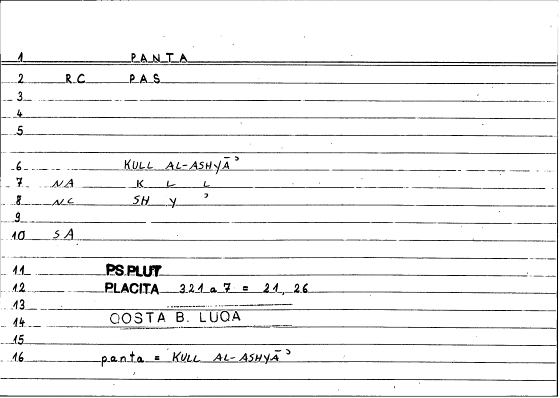 1 PANTA
2 RC PAS
3
4
5
6 KULL AL-ASHYĀʾ
7 NA K L L
8 NC SH Y ʾ
9
10 SA
11 PS.PLUT
12 PLACITA 321a7 = 21, 26
13
14 QOSTA B. LUQA
15
16 panta = KULL AL-ASHYĀʾ